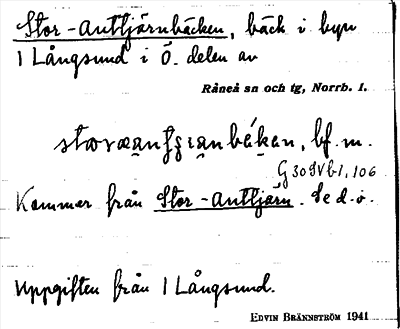 Stor-Anttjärnbäcken, bäck i byn
1 Långsund i Ö. delen av
Råneå sn och tg, Norrb. l.
bf. m.
G 30 IV b 1, 106
Kommer från Stor-Anttjärn. Se d.o.
Uppgiften från 1 Långsund.
EDVIN BRÄNNSTRÖM 1941